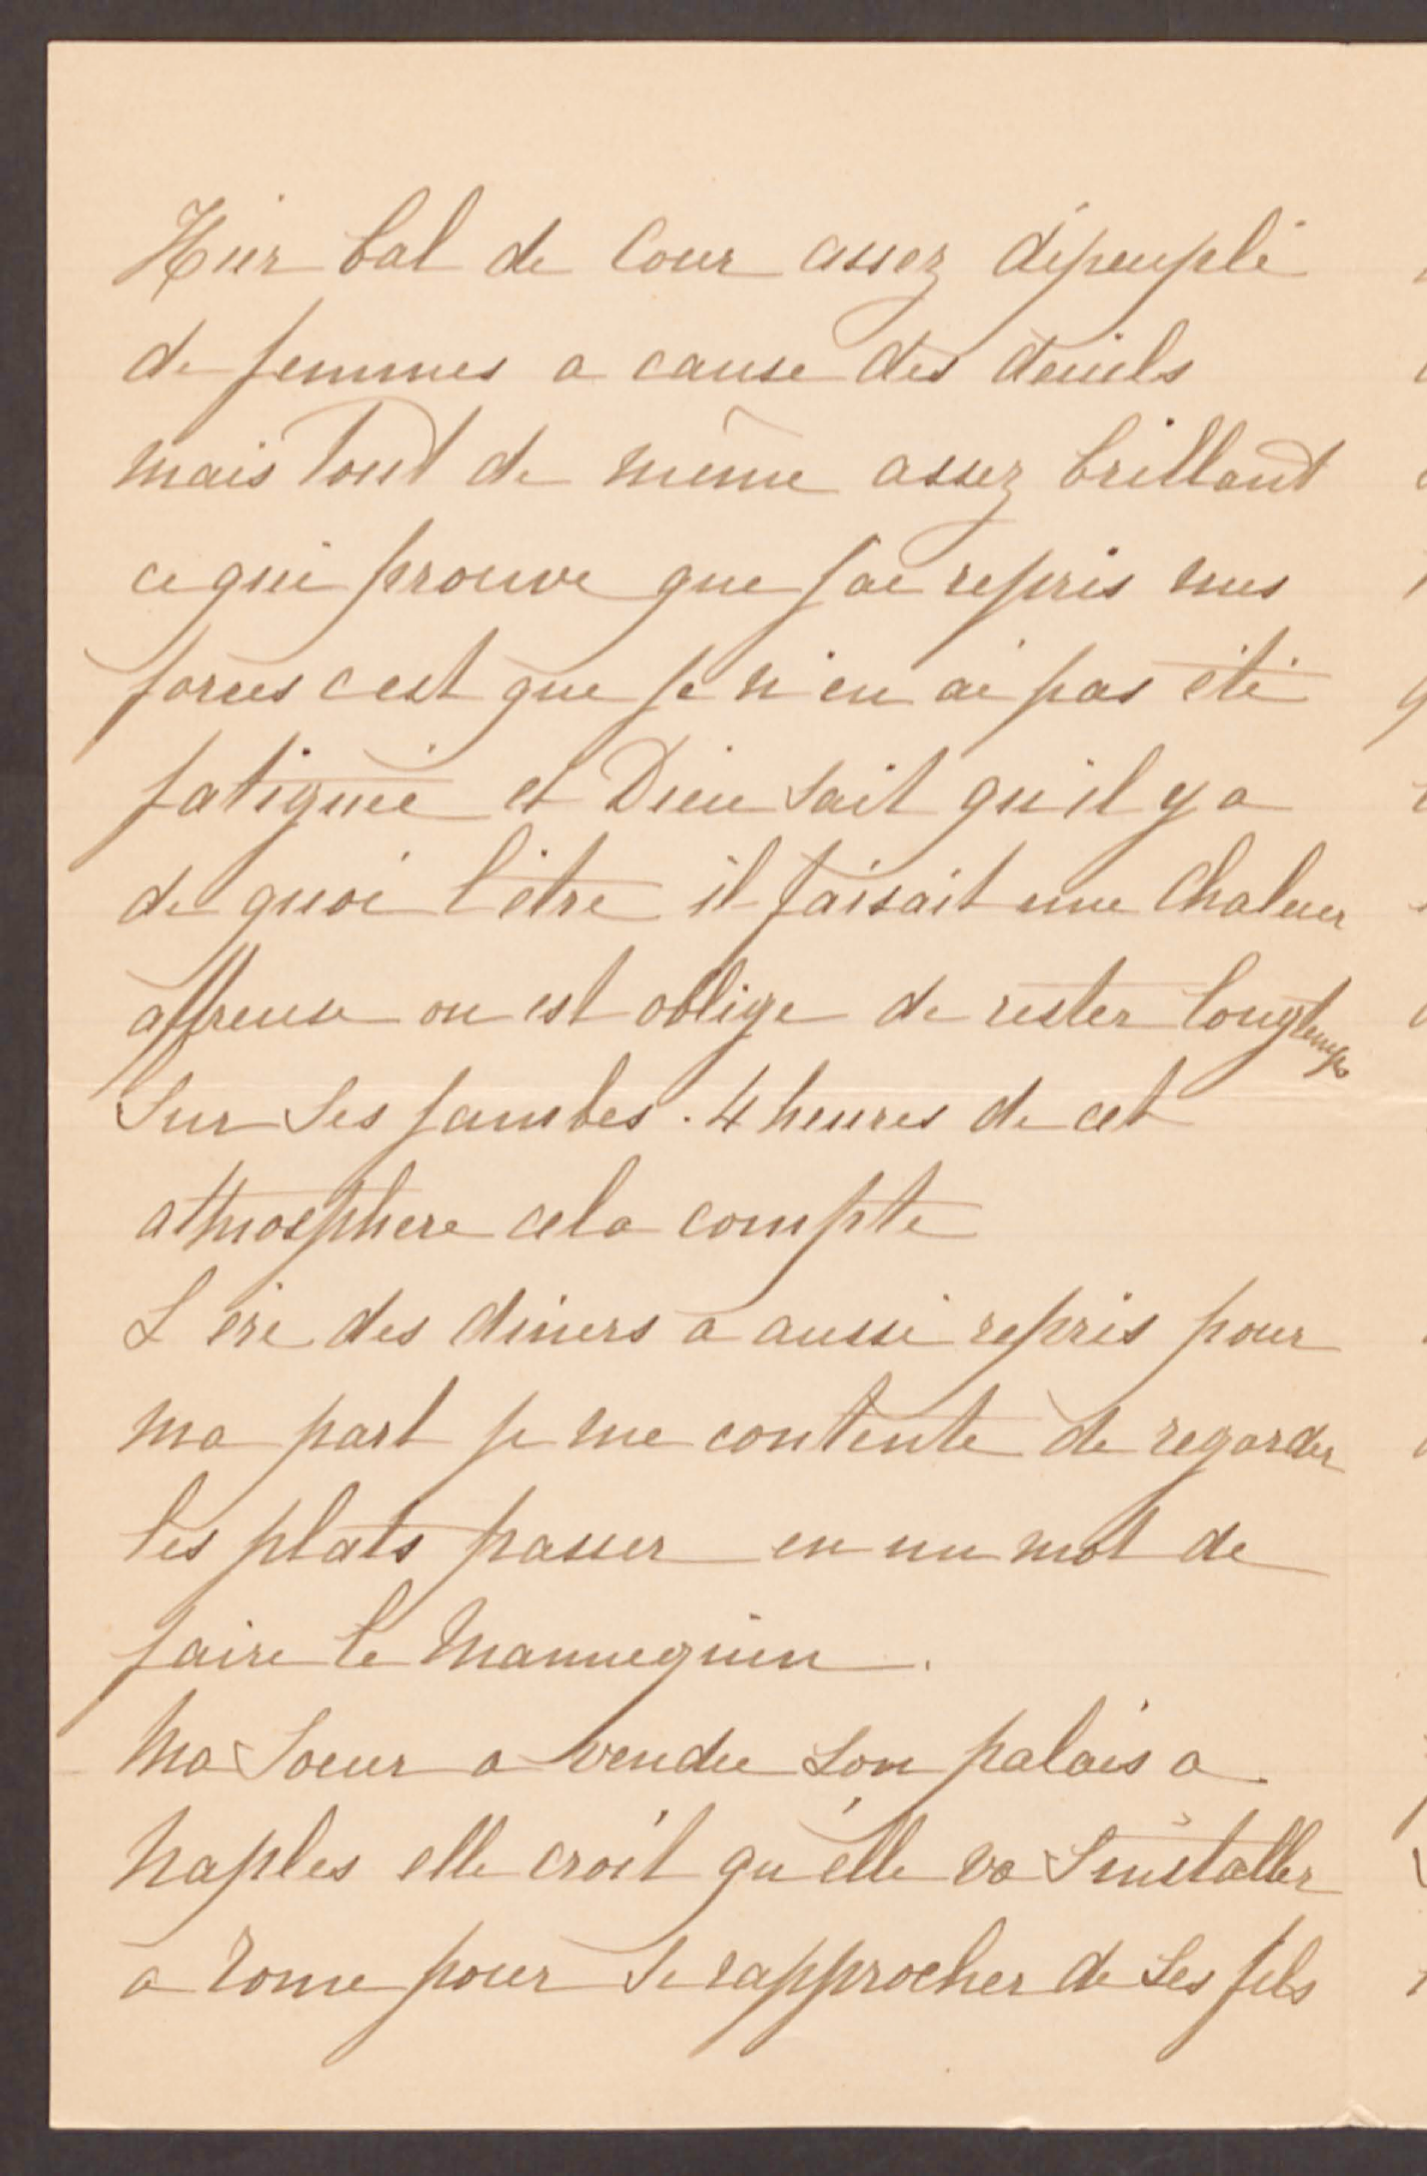 Hier bal de Cour assez dépeuplé
de femmes a cause des deuils
mais tout de même assez brillant
ce qui prouve que j'ai repris mes
forces c'est que je n'en ai pas été
fatiguée et Dieu sait qu'il y a
de quoi l'être il faisait une Chaleur
affreuse on est oblige de rester longtemps
Sur Ses jambes. 4 heures de cet
atmosphere cela compte
L'ère des diners a aussi repris pour
ma part je me contente de regarder
les plats passer en un mot de
faire le Mannequin.
Ma Soeur a vendu Son palais a
Naples elle croit qu'elle va S'installer
a Rome pour Se rapprocher de Ses fils